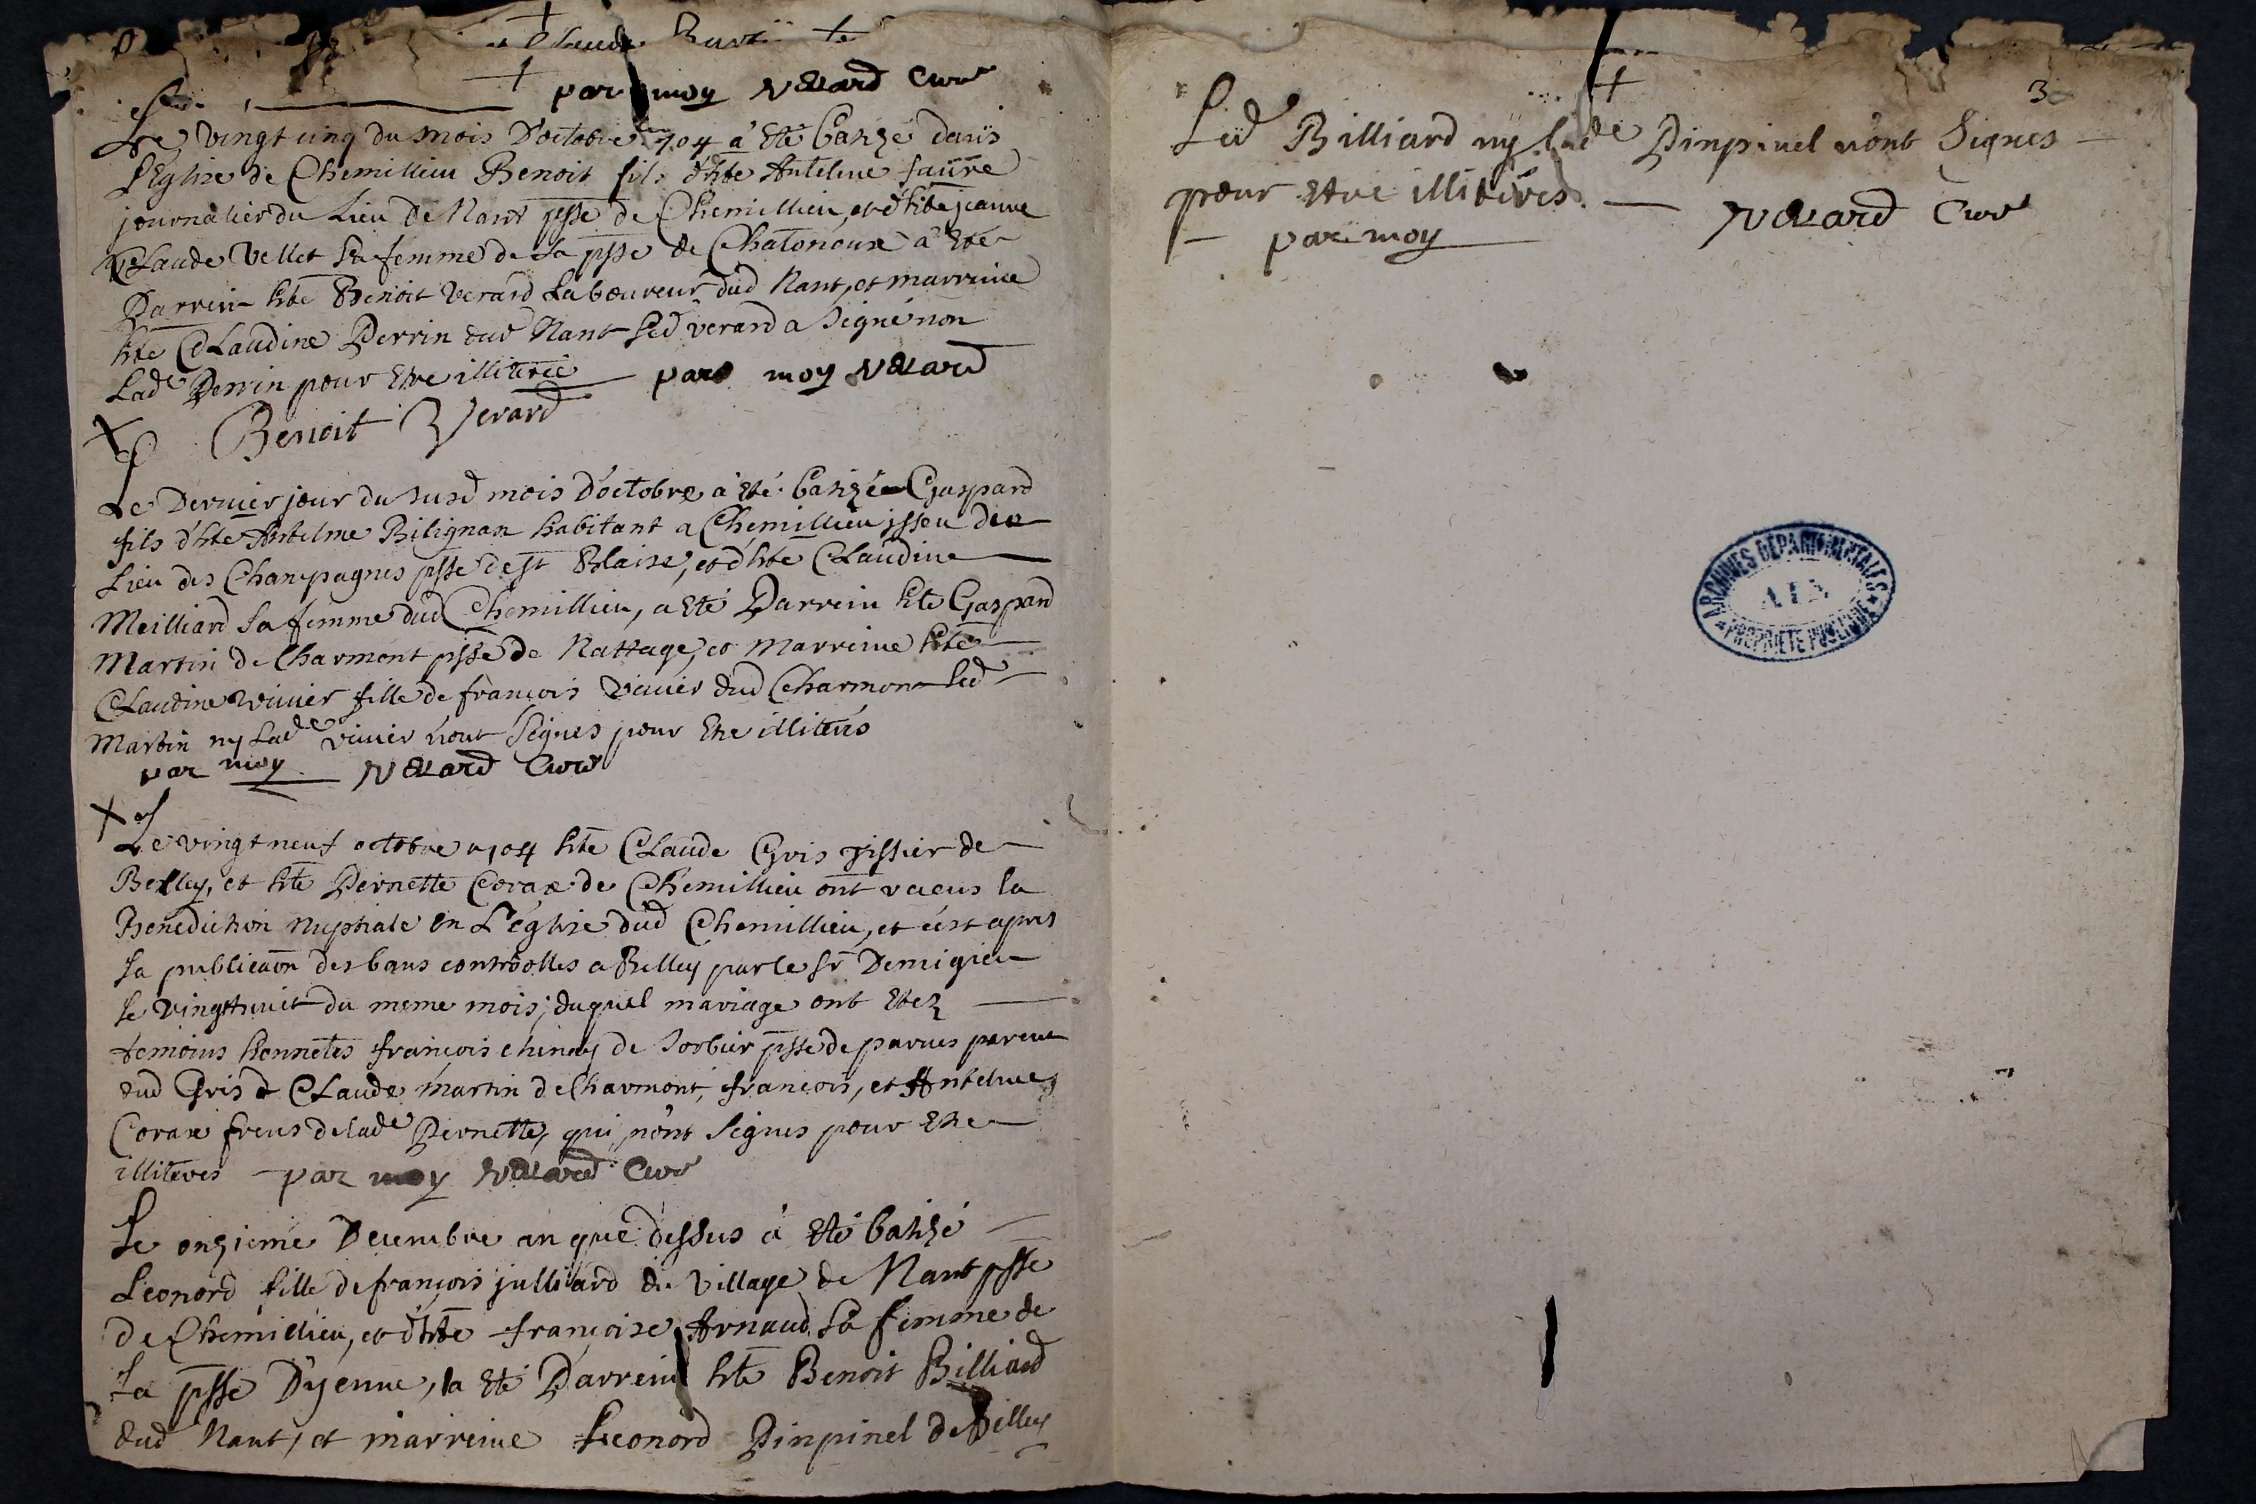 Claude
par moy Velard Curé
Le vingt cinq du mois D'octobre 1704 a été batizé dans
l'Eglise de Chemillieu Benoit fils d'hte Antelme faüvre
journalier du Lieu de Nant psse de Chemillieu, et d'hte jeanne
CLaude Vellet sa femme de La psse de Chatonoux a été
Parrein hte Benoit Verard Laboureur dud Nant, et marreine
hte CLaudine Perrin dud Nant Led verard a signé non
Lade Perrin pour etre illiterée par moy Velard
Benoit Verard
Le Dernier jour du susd mois D'octobre a été batizé Gaspard
fils d'hte Antelme Bilignan habitant a Chemillieu jsseu du
Lieu des Champagnes psse de st Blaise, et d'hte CLaudine
Meilliard sa femme dud Chemillieu, a été Parrein hte Gaspard
Martin de Charmont psse de Nattage, et Marreine hte
CLaudine vivier fille de françois vivier dud Charmont Led
Martin ny Lade vivier n'ont signés pour etre illiterés
par moy Velard Curé
Le vingt neuf octobre 1704 hte CLaude Gris tissier de
Belley, et hte Pernette Corax de Chemillieu ont receus la
Benediction Nuptiale en L'église dud Chemillieu, et c'est apres
la publicaon des bans controolles a Belley par le sr Demigieu
le vingthuit du meme mois; duquel mariage ont etez
temoins honnetes françois chinay de Sorbier psse de parves parent
dud Gris & CLaude Martin de Charmont, françois, et Antelme
Corax freres de lade Pernette, qui n'ont signes pour etre
illiteres par moy Velard Curé
Le onzieme Decembre an que dessus a été batizé
Leonord fille de françois julliard du village de Nant psse
De Chemillieu, et d'hte françoise Arnaud sa femme de
La psse D'yenne, a été Parrein hte Benoit Billiard
dud Nant, et marreine Leonord Pinpinel de Billey
3
Led Billiard ny lade Pinpinel n'ont signes
pour etre illiteres.
par moy Velard Curé
ARCHIVES DÉPARTEMENTALES
AIN
PROPRIÉTÉ PUBLIQUE